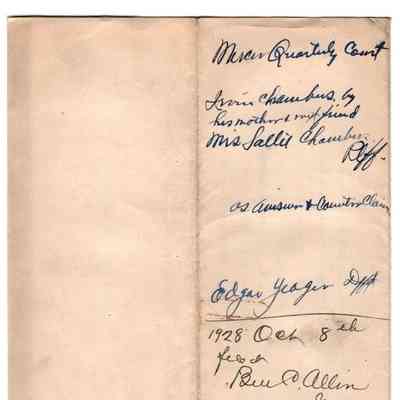 Mercer Quarterly Court
Irvin Chambers, by
his mother & next friend
Mrs Sallie Chambers.
Plff.
vs. Answer & Counter Claim
Edgar Yeager Dft
1928 Oct 8th
filed
Ben C. Allin